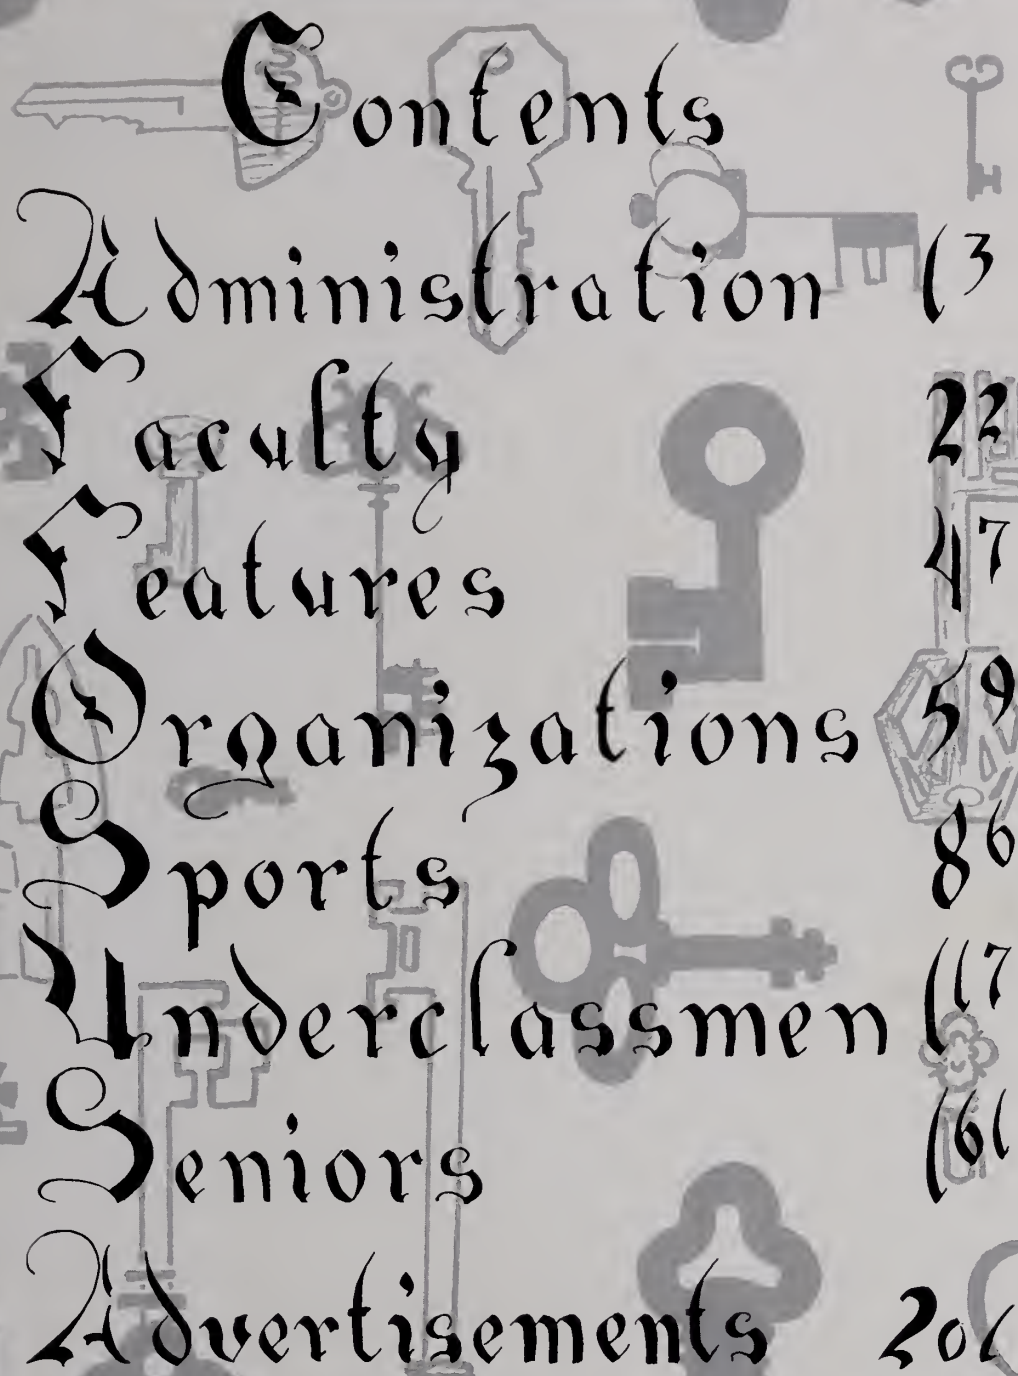 Contents
Administration 13
Faculty 22
Features 47
Organizations 59
Sports 86
Underclassmen 117
Seniors 161
Advertisements 201